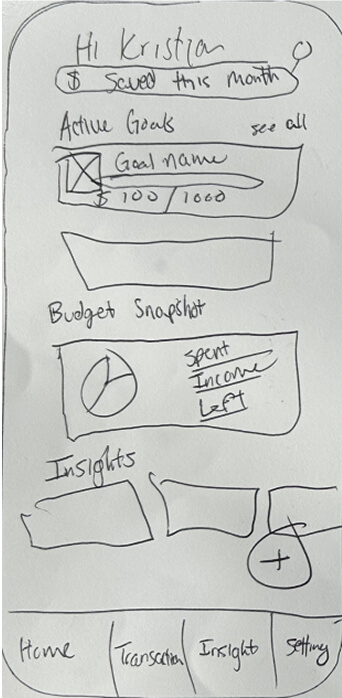 Hi Kristian
$ Saved this month
Active Goals see all
Goal name
$ 100/1000
Budget Snapshot
Spent
Income
Left
Insights
+
Home Transaction Insight Setting